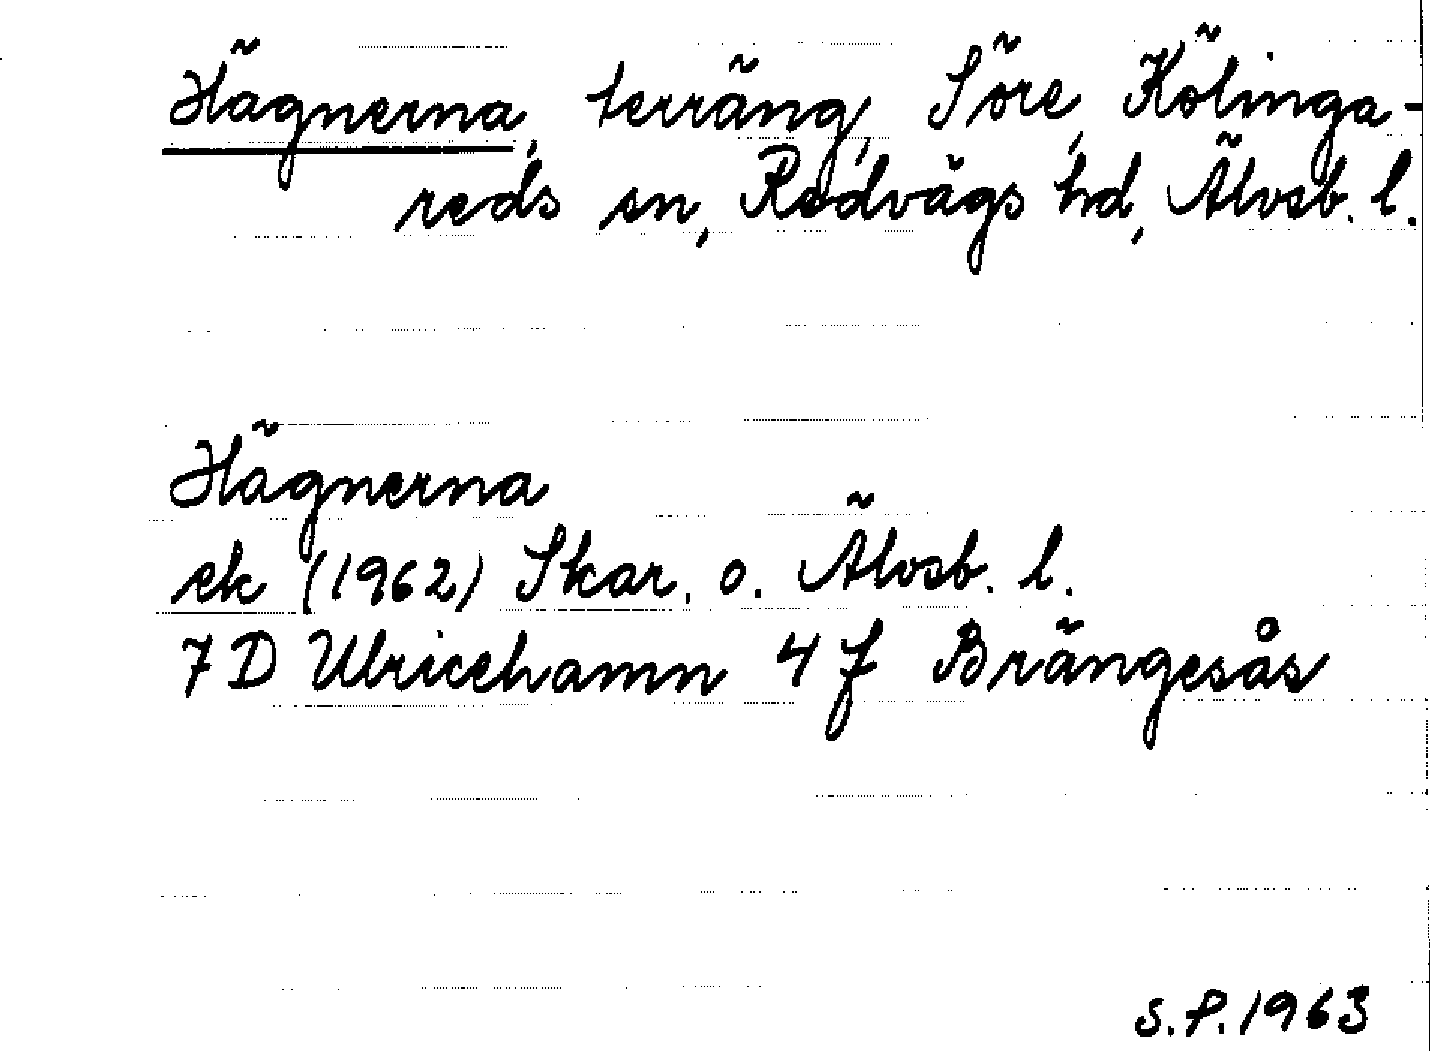 Hägnerna, terräng, Söre, Kölinga-
reds sn, Redvägs hd, Älvsb. l.
Hägnerna
ek (1962) Skar. o. Älvsb. l.
7D Ulricehamn 4f Brängesås
S.P. 1963